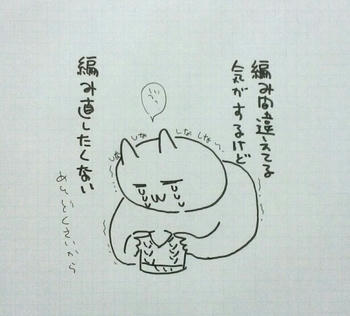 編み間違えてる
気がするけど
しな
しな
しな
しな
編み直したくない
めんどくさいから